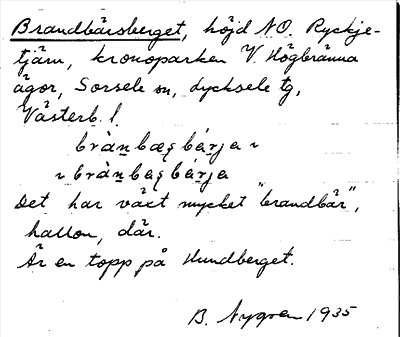 Brandbärsberget, höjd NO. Ryckje-
tjärn, kronoparken V. Högbränna
ägor, Sorsele sn, Lycksele tg,
Västerb. l.
bràn̲bæʂbár̲ja ~
~ bràn̲baʂbár̲ja
Det har växt mycket "brandbär",
hallon, där.
Är en topp på Hundberget.
B. Nygren 1935